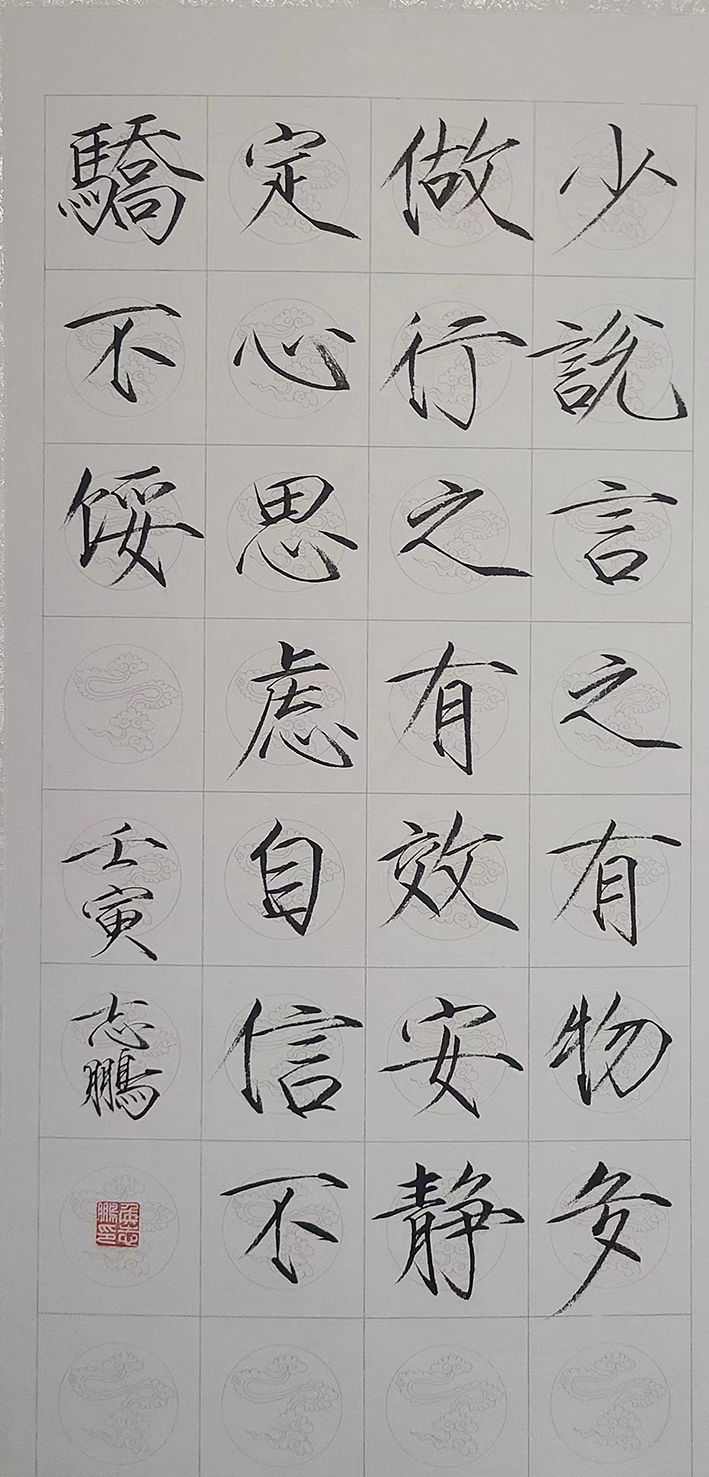 少說言之有物多
做行之有效安靜
定心思慮自信不
驕不餒
壬寅
志鵬